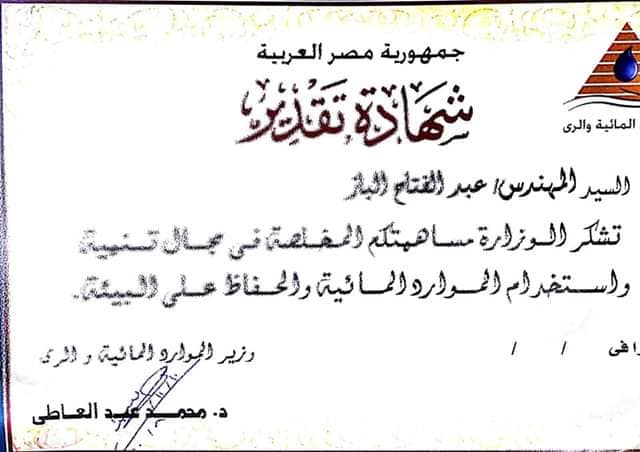 جمهورية مصر العربية
المائية والرى
شهادة تقدير
السيد المهندس/ عبد الفتاح الباز
تشكر الوزارة مساهمتكم المخلصة فى مجال تنمية
واستخدام الموارد المائية والحفاظ على البيئة.
فى / /
وزير الموارد المائية و الرى
د. محمد عبد العاطى